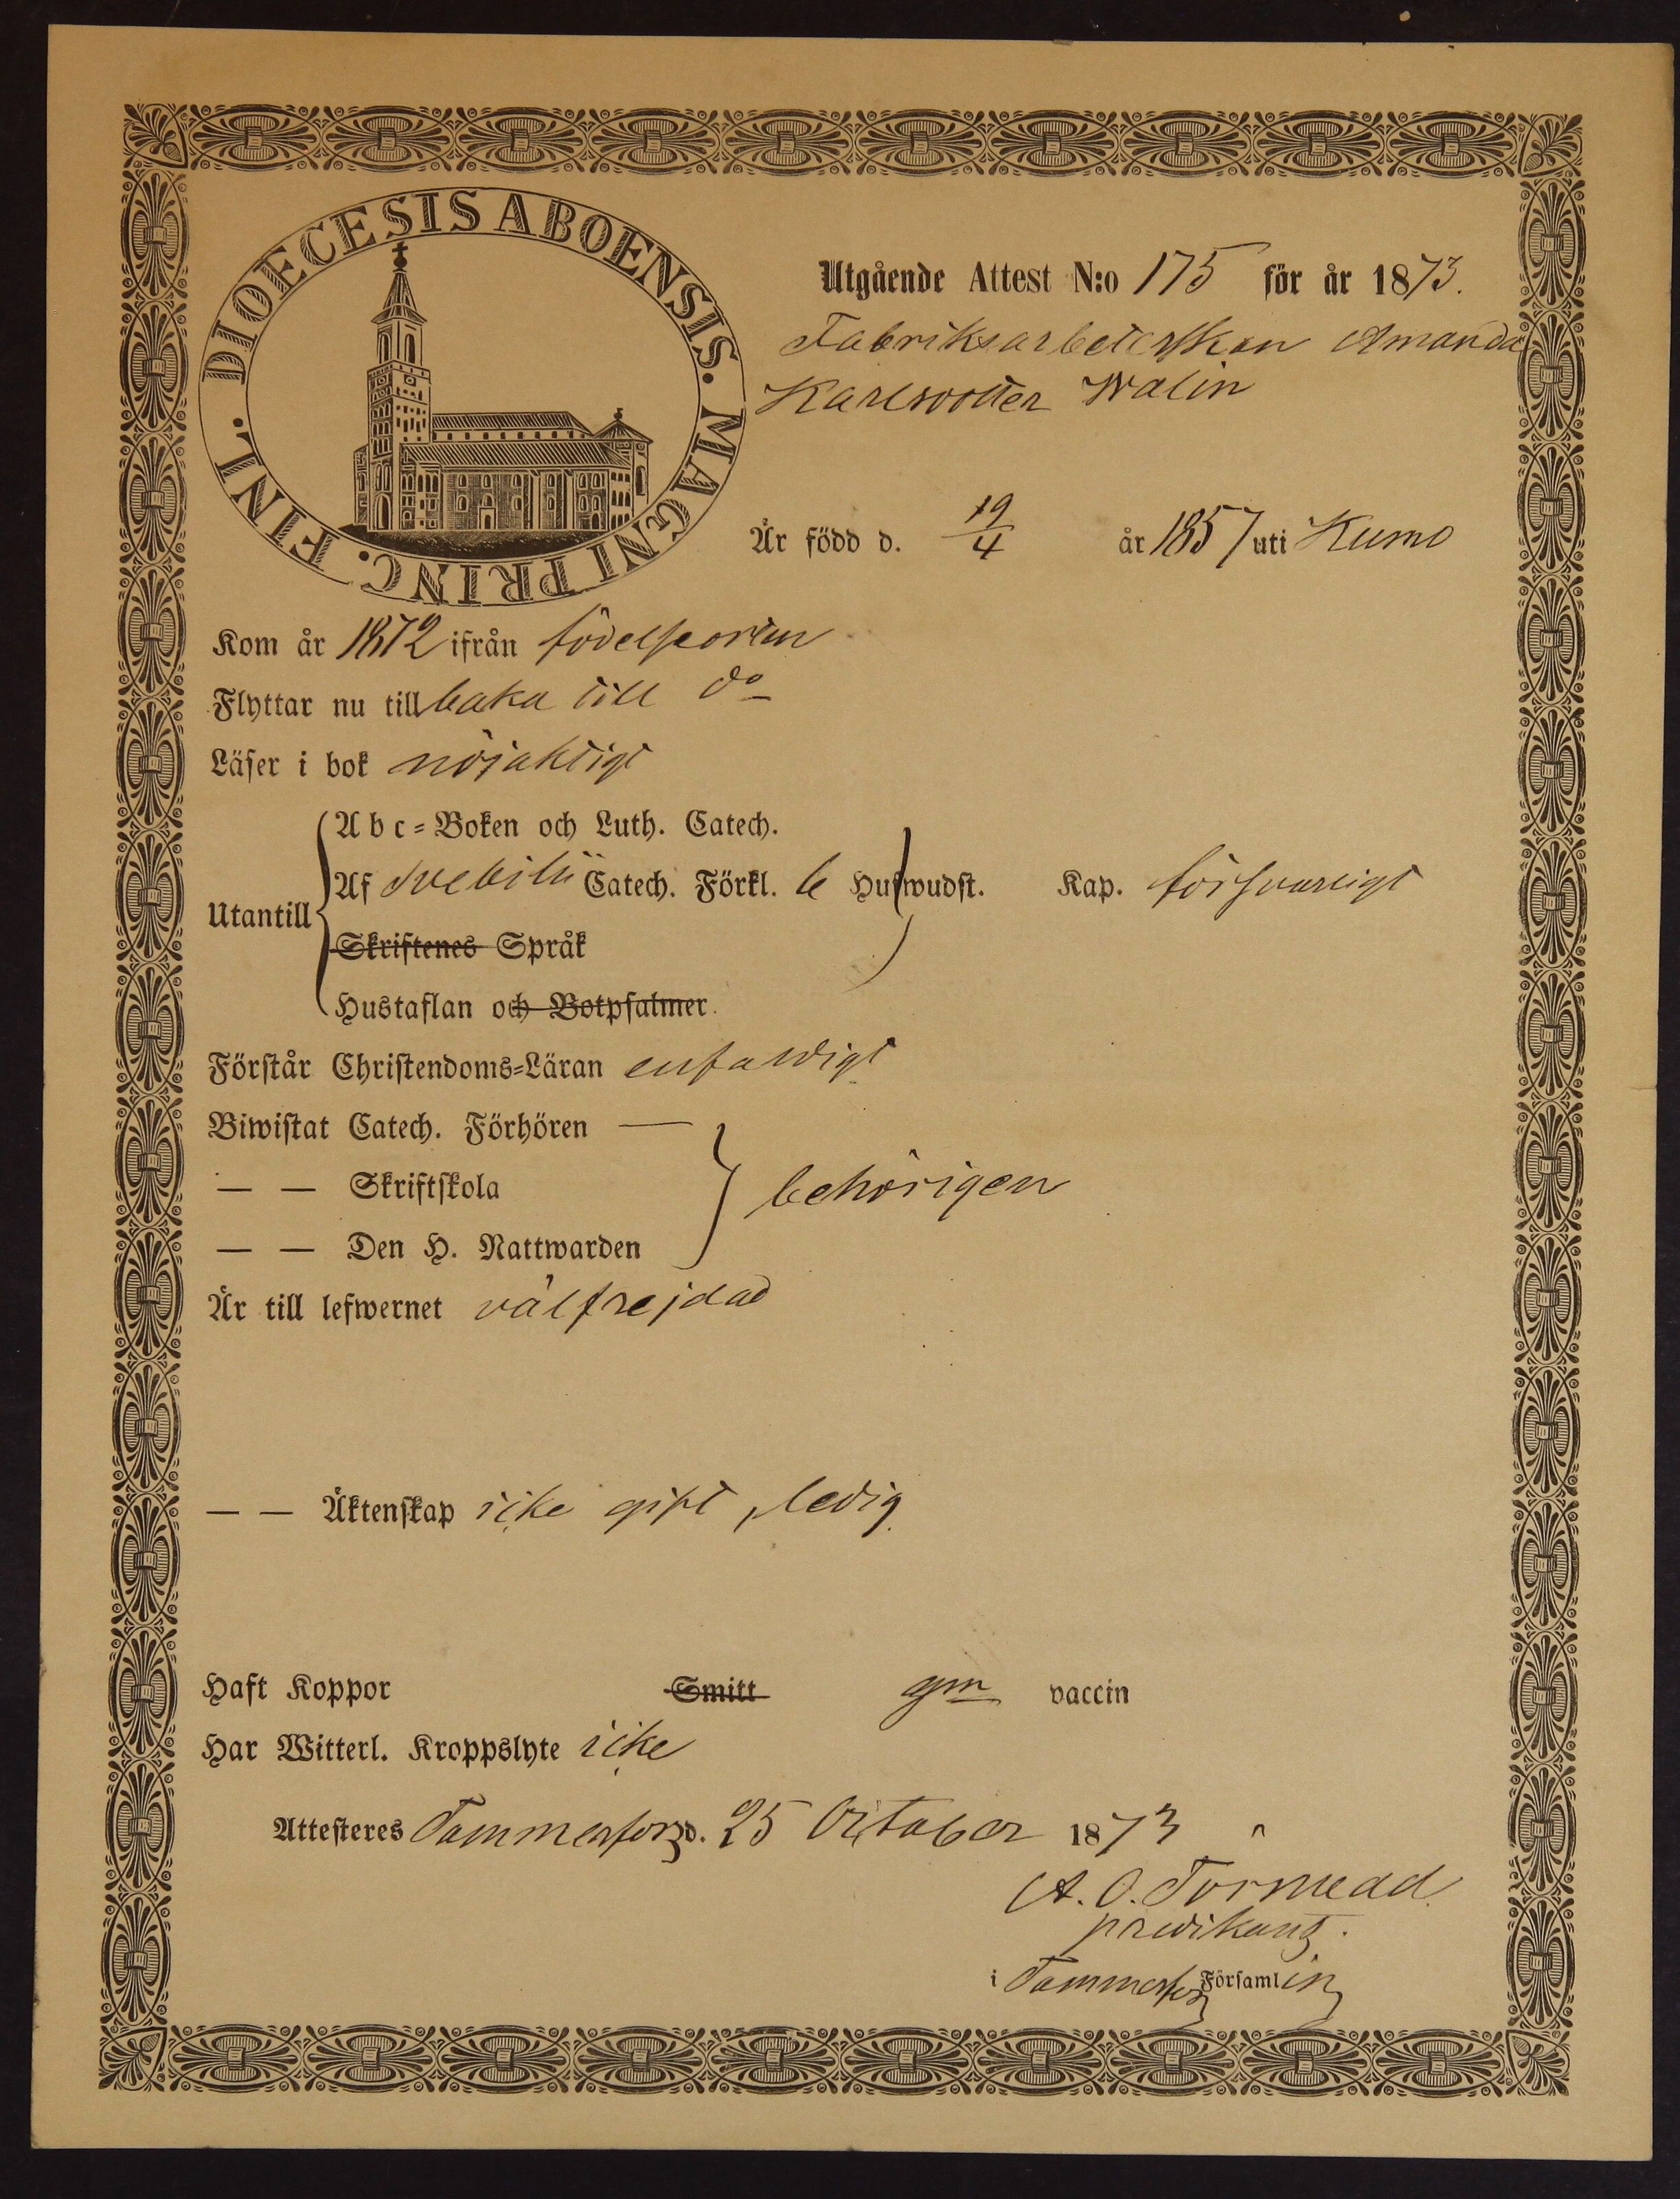 DIOECESIS ABOENSIS. MAGNI PRINC. FINL.
Utgående Attest N:o 175 för år 1873.
Fabriksarbeterskan Amanda
Karlsdotter Walin
Är född d. 19/4 år 1857 uti Kumo
Kom år 1872 ifrån födelseorten
Flyttar nu till baka till do
Läser i bok nöjaktigt
Utantill
Abc-Boken och Luth. Catech.
Af Svebilii Catech. Förkl. 6 Hufwudst. Kap. försvarligt
Skriftenes Språk
Hustaflan och Botpsalmer.
Förstår Christendoms-Läran enfaldigt
Biwistat Catech. Förhören —
— — Skriftskola behörigen
— — Den H. Nattwarden
Är till lefwernet välfrejdad
— — Äktenskap icke gift, ledig
Haft Koppor Smitt gm vaccin
Har Witterl. Kroppslyte icke
Attesteres Tammerfors d. 25 October 1873
A. O. Törnudd
predikant.
i Tammerfors Församling